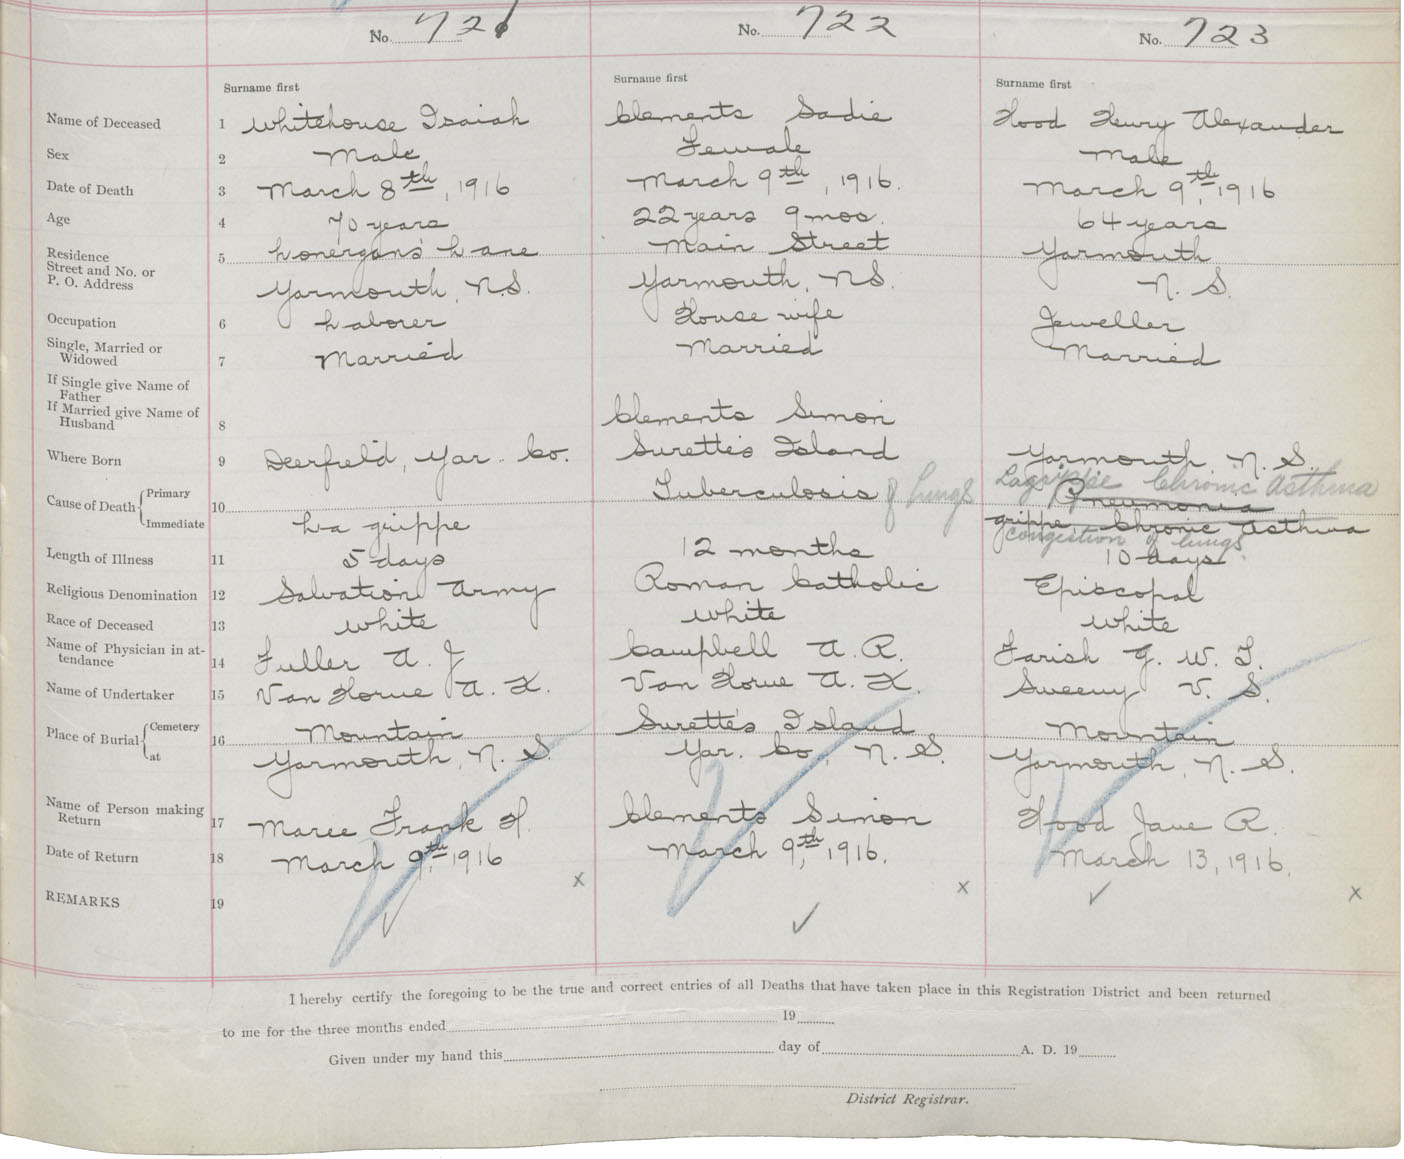 No. 721 No. 722 No. 723
Surname first Surname first Surname first
Name of Deceased 1 Whitehouse Isaiah Clements Sadie Hood Henry Alexander
Sex 2 Male Female Male
Date of Death 3 March 8th, 1916 March 9th, 1916. March 9th, 1916
Age 4 70 years 22 years 9 mos. 64 years
Residence
Street and No. or
P. O. Address
5 Lonergan's Lane Main Street Yarmouth
Yarmouth, N.S. Yarmouth, NS. N. S.
Occupation 6 Laborer House wife Jeweller
Single, Married or
Widowed 7 Married Married Married
If Single give Name of
Father
If Married give Name of
Husband 8 Clements Simon
Where Born 9 Deerfield, Yar. Co. Surette's Island Yarmouth, N. S.
Cause of Death Primary 10 Tuberculosis of lungs Lagrippe Chronic Asthma
Pneumonia
Immediate La grippe grippe, Chronic Asthma
congestion of lungs
Length of Illness 11 5 days 12 months 10 days
Religious Denomination 12 Salvation Army Roman Catholic Episcopal
Race of Deceased 13 White White White
Name of Physician in at-
tendance 14 Fuller A. J Campbell A. R. Farish G. W. T.
Name of Undertaker 15 Van Horne A. K. Van Horne A. K. Sweeny V. S.
Place of Burial Cemetery 16 Mountain Surette's Island Mountain
at Yarmouth, N. S. Yar. Co., N. S. Yarmouth, N. S.
Name of Person making
Return 17 Maree Frank H. Clements Simon Hood Jane R.
Date of Return 18 March 9th, 1916 March 9th, 1916. March 13, 1916.
x x x
REMARKS 19
I hereby certify the foregoing to be the true and correct entries of all Deaths that have taken place in this Registration District and been returned
to me for the three months ended 19
Given under my hand this day of A. D. 19
District Registrar.